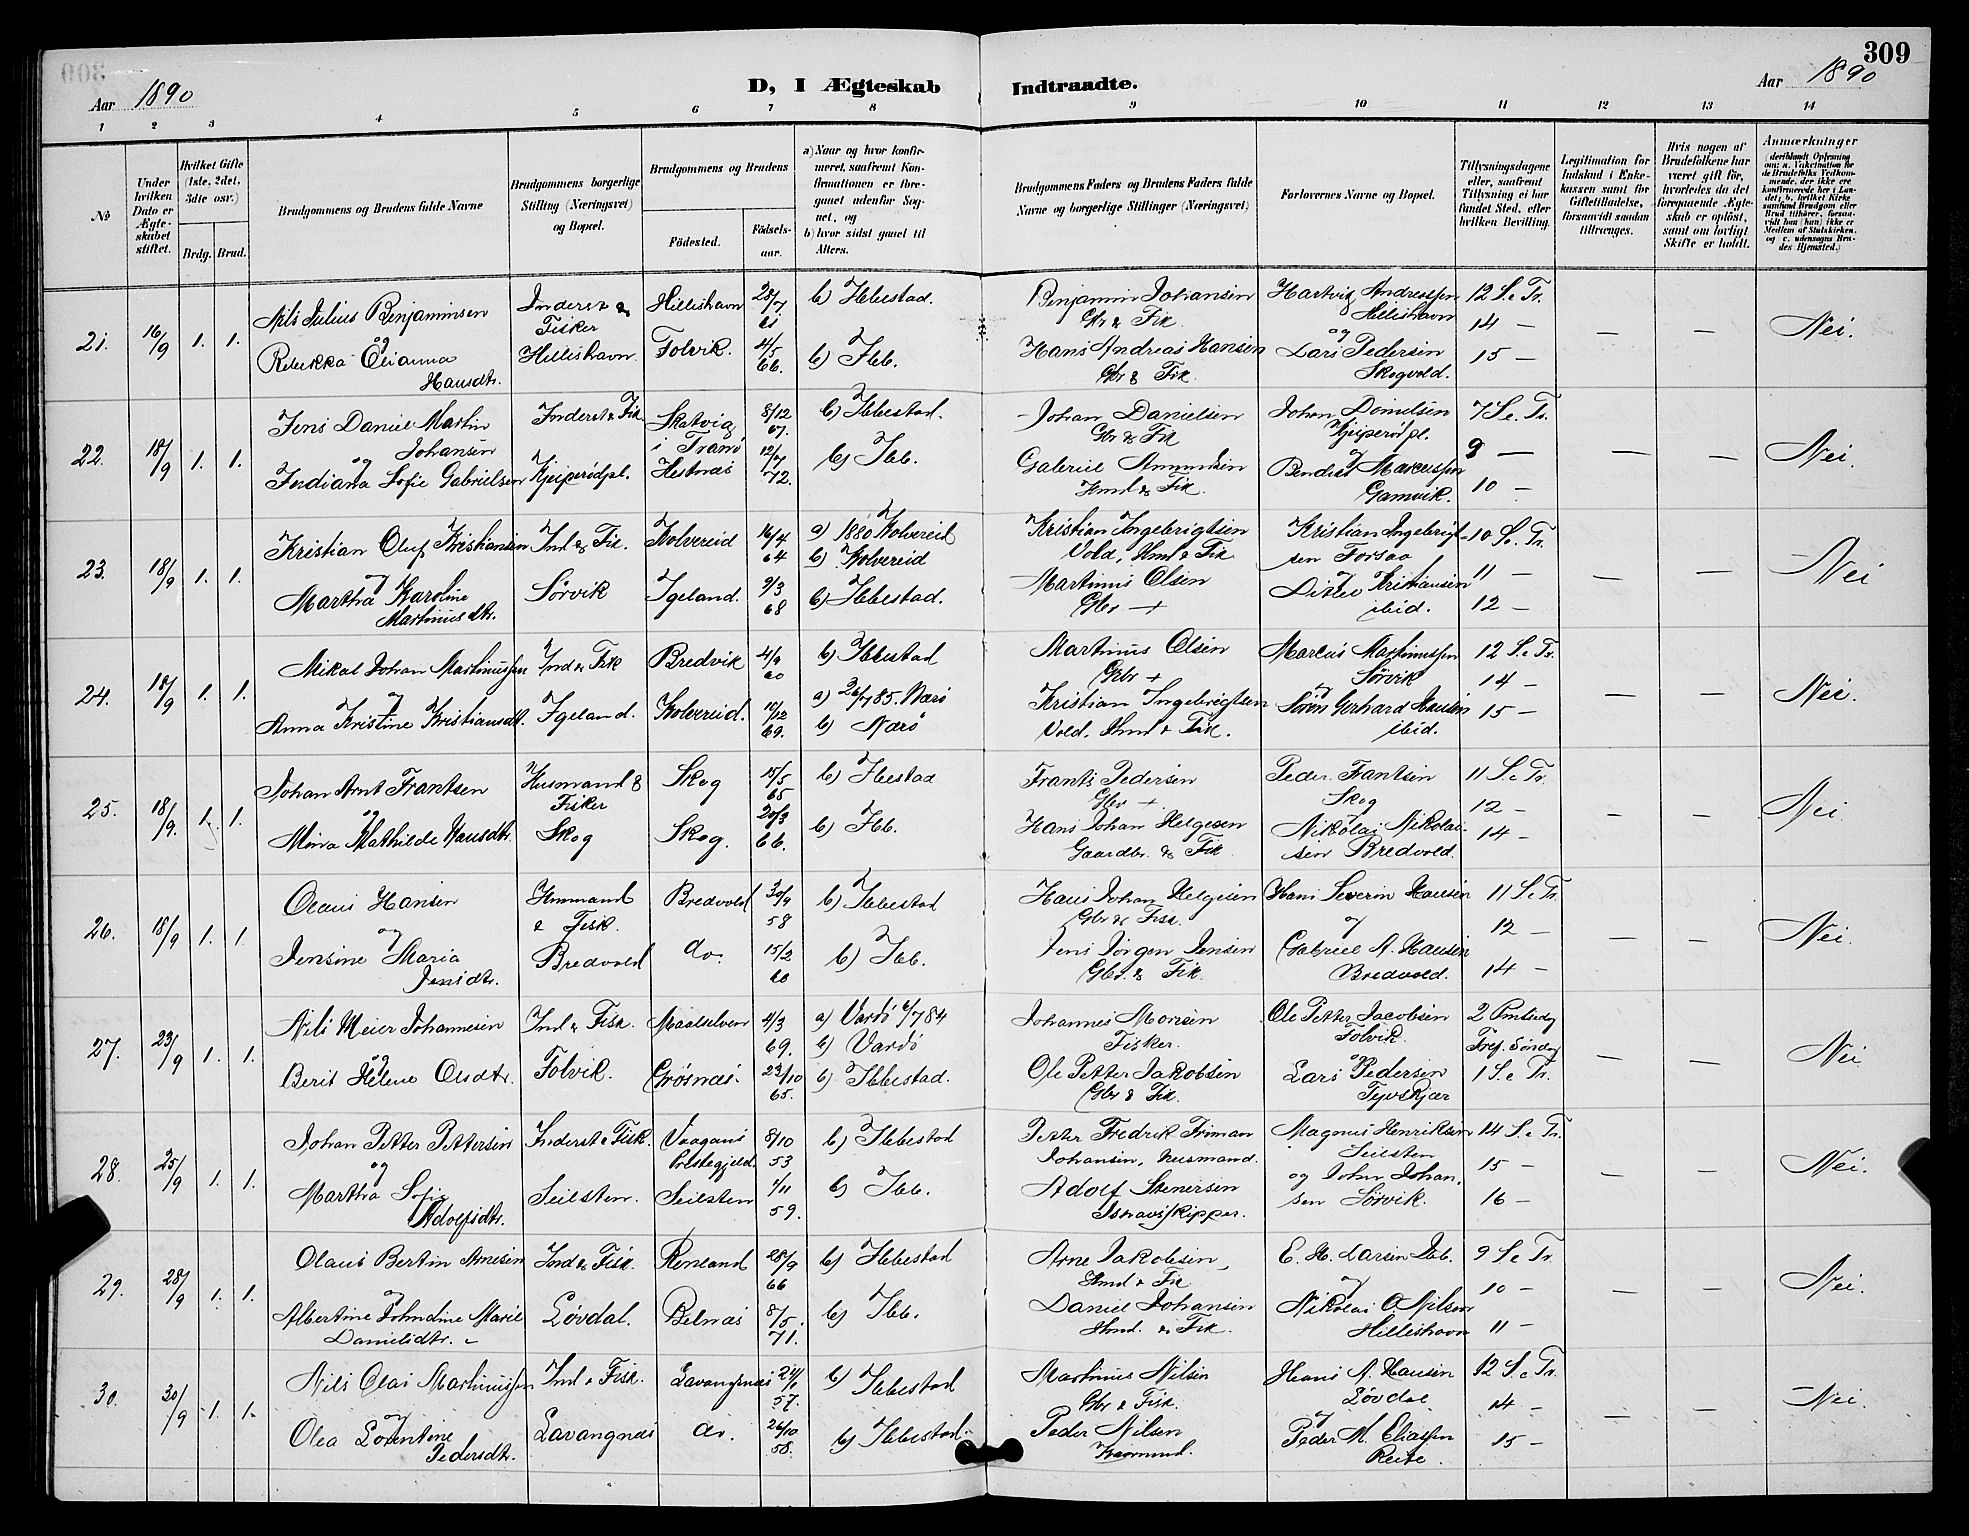 309
Aar 1890
D, I Ægteskab Indtraadte.
Aar 1890
1 2 3 4 5 6 7 8 9 10 11 12 13 14
No
Under hvilken Dato er Ægteskabet stiftet.
Hvilket Gifte (1ste, 2det, 3die osv.)
Brdg. Brud.
Brudgommens og Brudens fulde Navne
Brudgommens borgerlige Stilling (Næringsvei) og Bopæl.
Brudgommens og Brudens
Fødested.
Fødselsaar.
a) Naar og hvor konfirmeret, saafremt Konfirmationen er foregaaet udenfor Sognet, og
b) hvor sidst gaaet til Alters.
Brudgommens Faders og Brudens Faders fulde Navne og borgerlige Stillinger (Næringsvei)
Forlovernes Navne og Bopæl.
Tillysningsdagene eller, saafremt Tillysning ei har fundet Sted, efter hvilken Bevilling.
Legitimation for Indskud i Enkekassen samt for Giftetilladelse, forsaavidt saadan tiltrænges.
Hvis nogen af Brudefolkene har været gift før, hvorledes da det foregaaende Ægteskab er opløst, samt om lovligt Skifte er holdt.
Anmærkninger
(deriblandt Oplysning om: a. Vakcination for de Brudefolks Vedkommende, der ikke ere konfirmerede her i Landet; b. hvilket Kirkesamfund Brudgom eller Brud tilhører, forsaavidt han (hun) ikke er Medlem af Statskirken, og c. udensogns Brudes Hjemsted.)
21. 16/9 1. 1.
Nils Julius Benjaminsen
og
Rebekka Elianna Hansdtr.
Inderst & Fisker
Hilleshavn.
Hilleshavn 28/7 61
Folvik. 4/5 66.
b) Ibbestad.
b) Ibb.
Benjamin Johansen
Gbr & Fik.
Hans Andreas Hansen
Gbr & Fik.
Hartvig Andreassen
Hilleshavn
og
Lars Pedersen
Skogvold.
12 S. e Tr.
14 —
15 —
— — Nei.
22. 18/9 1. 1.
Jens Daniel Martin Johansen
og
Indiana Sofie Gabrielsen
Inderst & Fik
Kjeiperødpl.
Skatvig i Tranø 8/12 67.
Hestnæs 12/7 72.
b) Ibbestad.
b) Ibb.
Johan Danielsen
Gbr & Fik
Gabriel Amundsen
Hmd & Fik.
Johan Danielsen
Kjeiperød pl.
og
Bendist Marcussen
Gamvik.
7 S. e. Tr.
9 —
10 —
— — Nei.
23. 18/9 1. 1.
Kristian Oluf Kristiansen
og
Martha Karoline Martinusdtr.
Ind & Fik.
Sørvik
Kolvereid 16/4 64
Igeland. 9/3 68
a) 1880 Kolvereid
b) Kolvereid
b) Ibbestad.
Kristian Ingebrigtsen
Vold, Hmd & Fik.
Martinus Olsen
Gbr +
Kristian Ingebrigtsen Forsaa
og
Ditlev Kristiansen
ibid.
10 S. e. Tr.
11 —
12 —
— — Nei
24. 18/9 1. 1.
Mikal Johan Martinussen
og
Anna Kristine Kristiansdt.
Ind & Fik
Igeland.
Bredvik 4/9 60
Kolvereid. 11/12 69.
b) Ibbestad
a) 26/7 85. Nærø
b) Nærø
Martinus Olsen
Gbr +
Kristian Ingebrigtsen
Vold. Hmd & Fik.
Marcus Martinussen
Sørvik
og
Søren Gerhard Hansen
ibid.
12 S. e Tr.
14 —
15 —
— — Nei.
25. 18/9. 1. 1.
Johan Arnt Frantsen
og
Mina Mathilde Hansdtr.
Husmand & Fisker
Skog
Skog 15/5 65
Skog. 20/3 66.
b) Ibestad
b) Ibb.
Frants Pedersen
Gbr +
Hans Johan Helgesen
Gaardbr. & Fik
Peder Frantsen
Skog
Nikolai Nikolaisen Bredvold.
11 S. e Tr.
12 —
14 —
— — Nei
26. 18/9 1. 1
Olaus Hansen
og
Jensine Maria Jensdtr.
Husmand & Fisk.
Bredvold
Bredvold 30/9 58
do. 15/2 60
b) Ibbestad
b) Ibb.
Hans Johan Helgesen
Gbr & Fisk.
Jens Jørgen Jensen
Gbr. & Fik.
Hans Severin Hansen
og
Gabriel A. Hansen
Bredvold.
11 S. e. Tr.
12 —
14 —
— — Nei.
27. 23/9 1. 1.
Nils Meier Johannesen
og
Berit Helene Olsdtr.
Ind & Fisk.
Folvik.
Maalselven 4/3 69.
Grøsnæs. 23/10 65.
a) Vardø 6/7 84
b) Vardø
b) Ibbestad.
Johannes Monsen
Fisker.
Ole Petter Jakobsen
Gbr & Fik.
Ole Petter Jacobsen
Folvik.
og
Lars Pedersen
Tyvskjær
2 Pintsedag
Tref. Søndag
1 S. e Tr.
— — Nei
28. 25/9 1. 1.
Johan Petter Pettersen
og
Martha Sofie Adolfsdtr.
Inderst & Fisk.
Seilsten.
Vaagans Prestegjeld. 8/10 53
Seilsten 1/11 59.
b) Ibbestad
b) Ibb.
Petter Fredrik Friman
Johansen, Husmand.
Adolf Stenersen
Ishavsskipper.
Magnus Henriksen
Seilsten
og Johan Johansen Sørvik.
14 S. e Tr.
15 —
16 —
— — Nei.
29. 28/9 1. 1.
Olaus Bertin Arnesen
og
Albertine Johndine Marie Danielsdtr.
Ind & Fisk.
Løvdal.
Renland 28/9 66
Belnæs 8/5. 71.
b) Ibbestad
b) Ibb.
Arne Jakobsen
Hmd & Fik
Daniel Johansen
Hmd. & Fik.
E. H. Larsen Ibb.
og
Nikolai O. Nilsen
Hilleshavn
9 S. e Tr
10 —
11 —
— — Nei.
30. 30/9 1. 1.
Nils Olai Martinussen
og
Olea Lorentine Pedersdtr.
Ind & Fisk.
Lavangnæs
Lavangnæs 57.
do. 26/10 58.
b) Ibbestad
b) Ibbestad.
Martinus Nilsen
Gbr & Fisk.
Peder Nilsen
Hans A. Hansen
Løvdal
og
Peder M. Eliassen
Reite.
12 S. e Tr.
14 —
15 —
— — Nei.